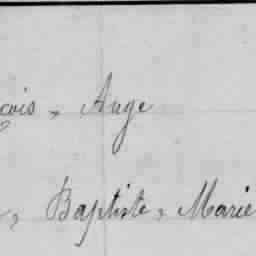 çois, Ange
, Baptiste, Marie